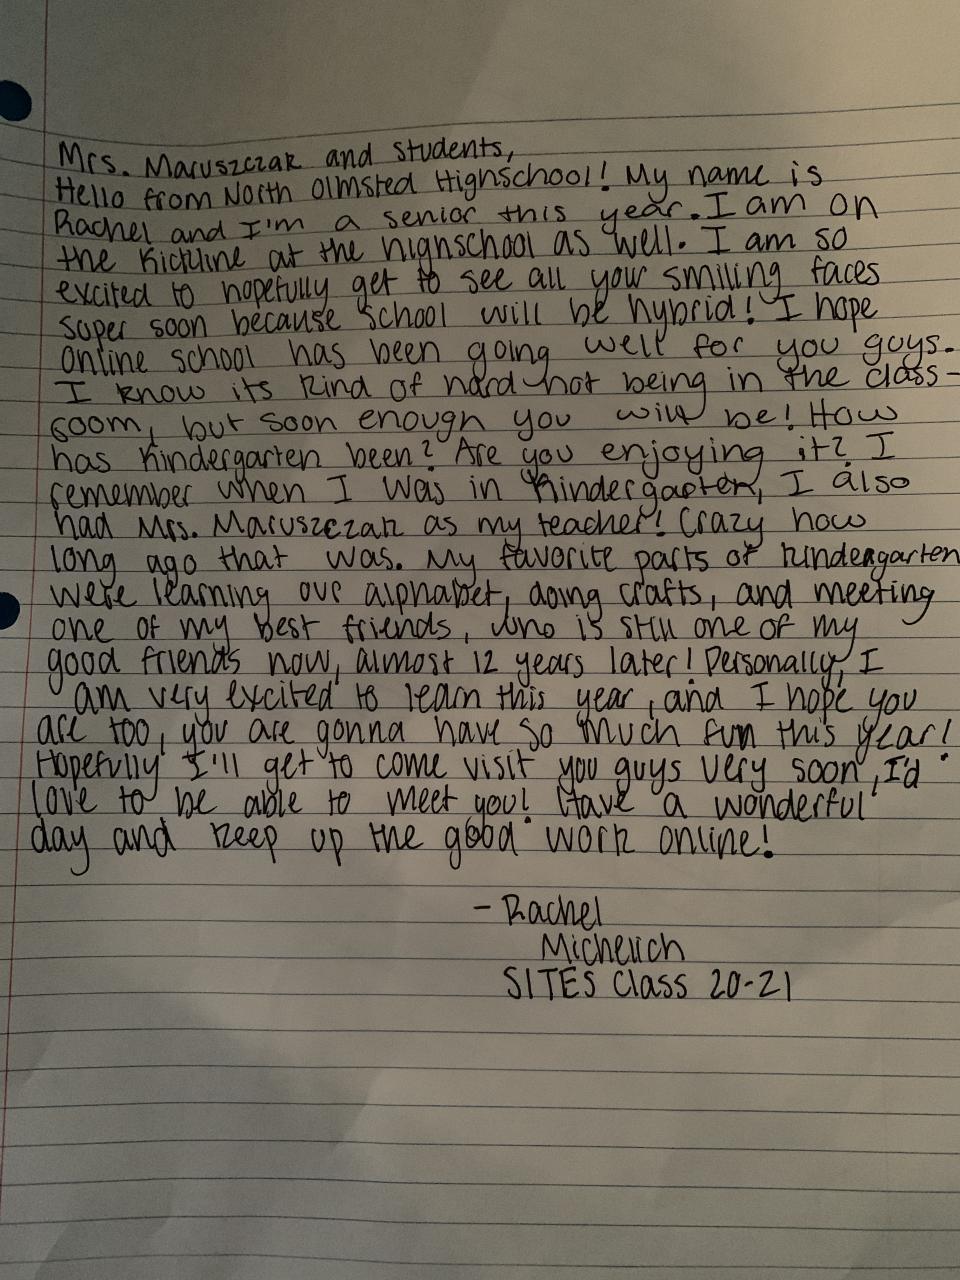 Mrs. Maruszczak and students,
Hello from North Olmsted Highschool! My name is
Rachel and I'm a senior this year. I am on
the Kickline at the highschool as well. I am so
excited to hopefully get to see all your smiling faces
super soon because school will be hybrid! I hope
online school has been going well for you guys.
I know its kind of hard not being in the class-
room, but soon enough you will be! How
has kindergarten been? Are you enjoying it? I
remember when I was in kindergarten, I also
had Mrs. Maruszczak as my teacher! Crazy how
long ago that was. My favorite parts of kindergarten
were learning our alphabet, doing crafts, and meeting
one of my best friends, who is still one of my
good friends now, almost 12 years later! Personally, I
am very excited to learn this year, and I hope you
are too, you are gonna have so much fun this year!
Hopefully I'll get to come visit you guys very soon, I'd
love to be able to meet you! Have a wonderful
day and keep up the good work online!
- Rachel
Michelich
SITES Class 20-21